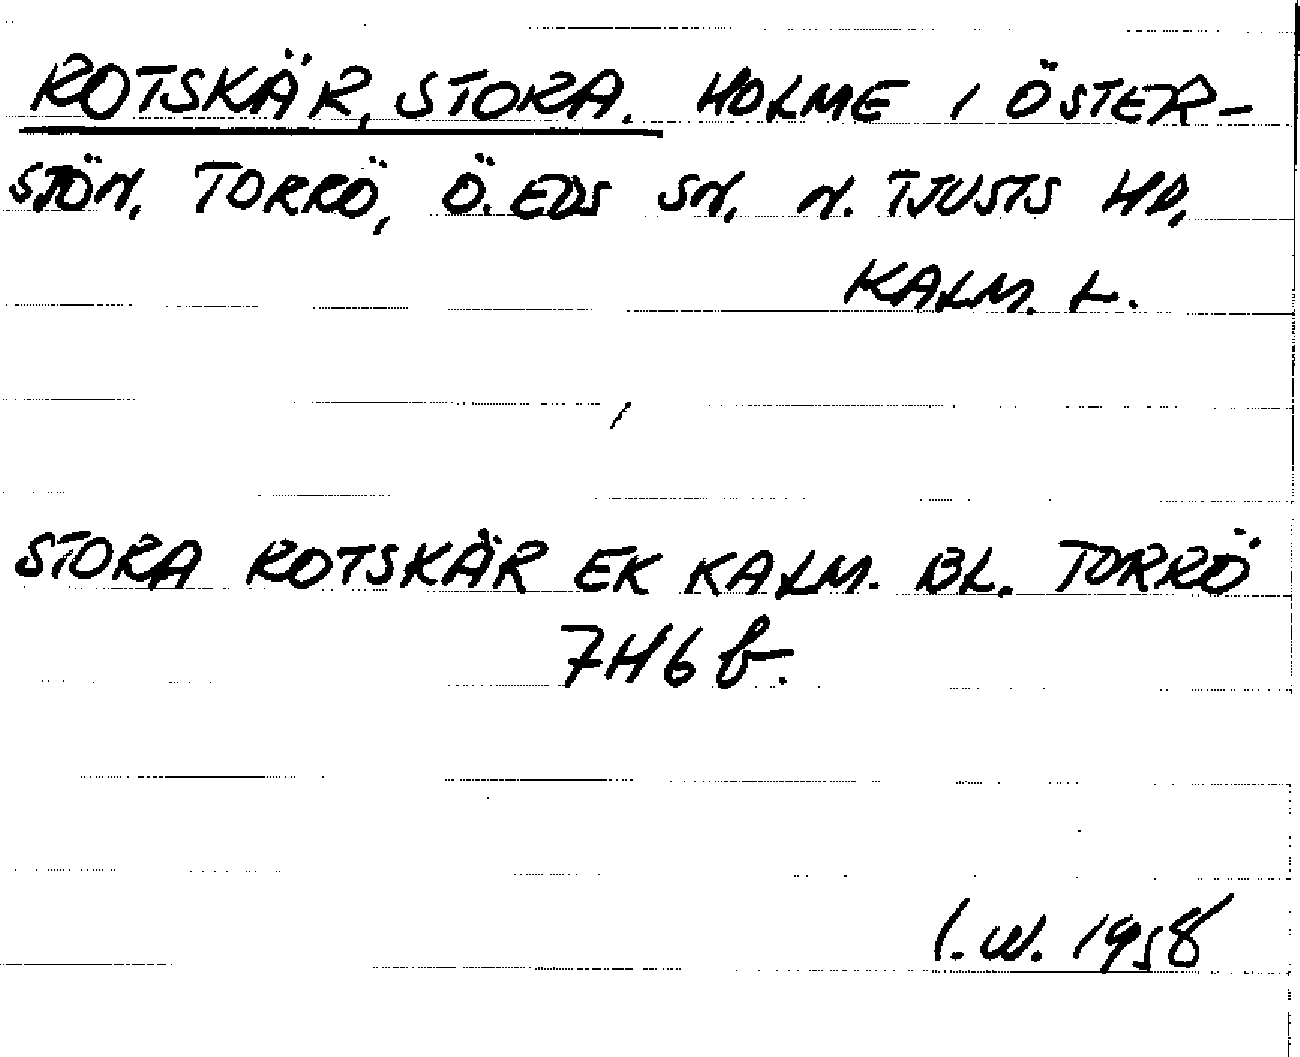 ROTSKÄR, STORA. HOLME I ÖSTER-
SJÖN, TORRÖ, Ö. EDS SN, N. TJUSTS HD,
KALM. L.
STORA ROTSKÄR EK KALM. BL. TORRÖ
7H6b.
I.W. 1958